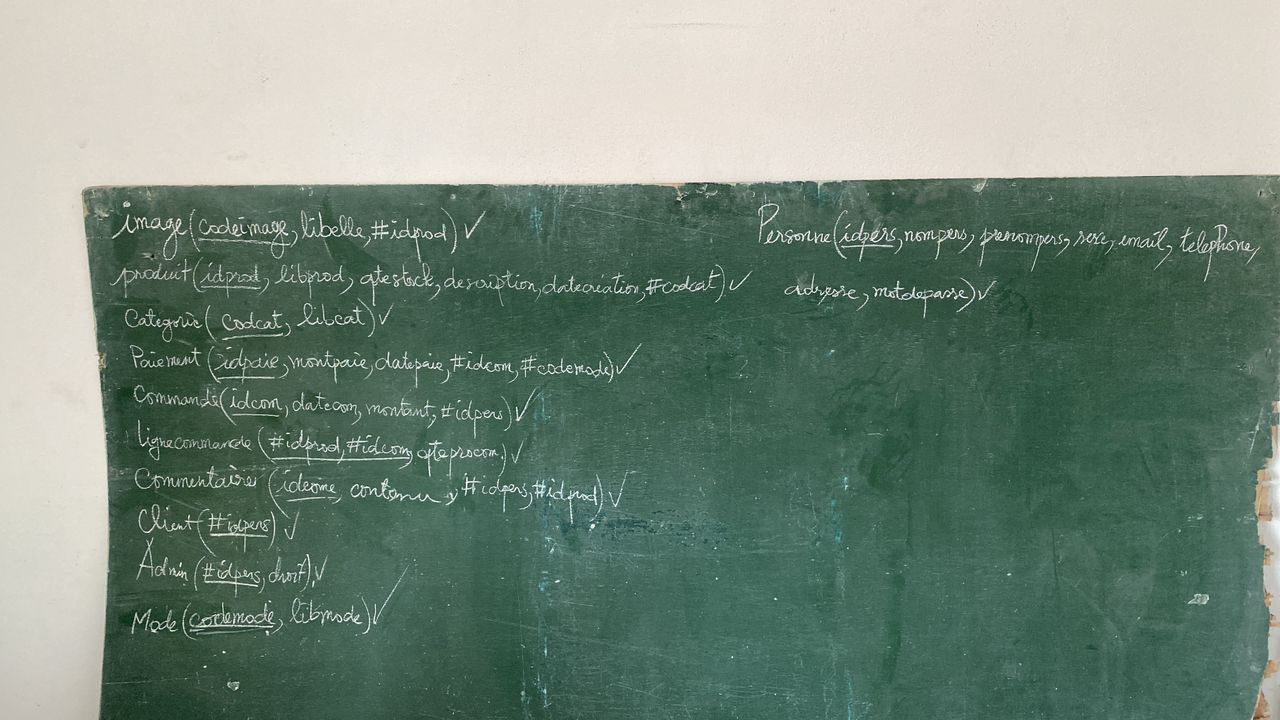 image(codeimage, libelle, #idprod) ✓
produit(idprod, libprod, qtestock, description, datecréation, #codcat) ✓
Categorie(codcat, libcat) ✓
Paiement(idpaie, montpaie, datepaie, #idcom, #codemode) ✓
Commande(idcom, datecom, montant, #idpers) ✓
lignecommande(#idprod, #idcom, qteprocom) ✓
Commentaires(idcome, contenu, #idpers, #idprod) ✓
Client(#idpers) ✓
Admin(#idpers, droit) ✓
Mode(codemode, libmode) ✓
Personne(idpers, nompers, prenompers, sexe, email, telephone,
adresse, motdepasse) ✓